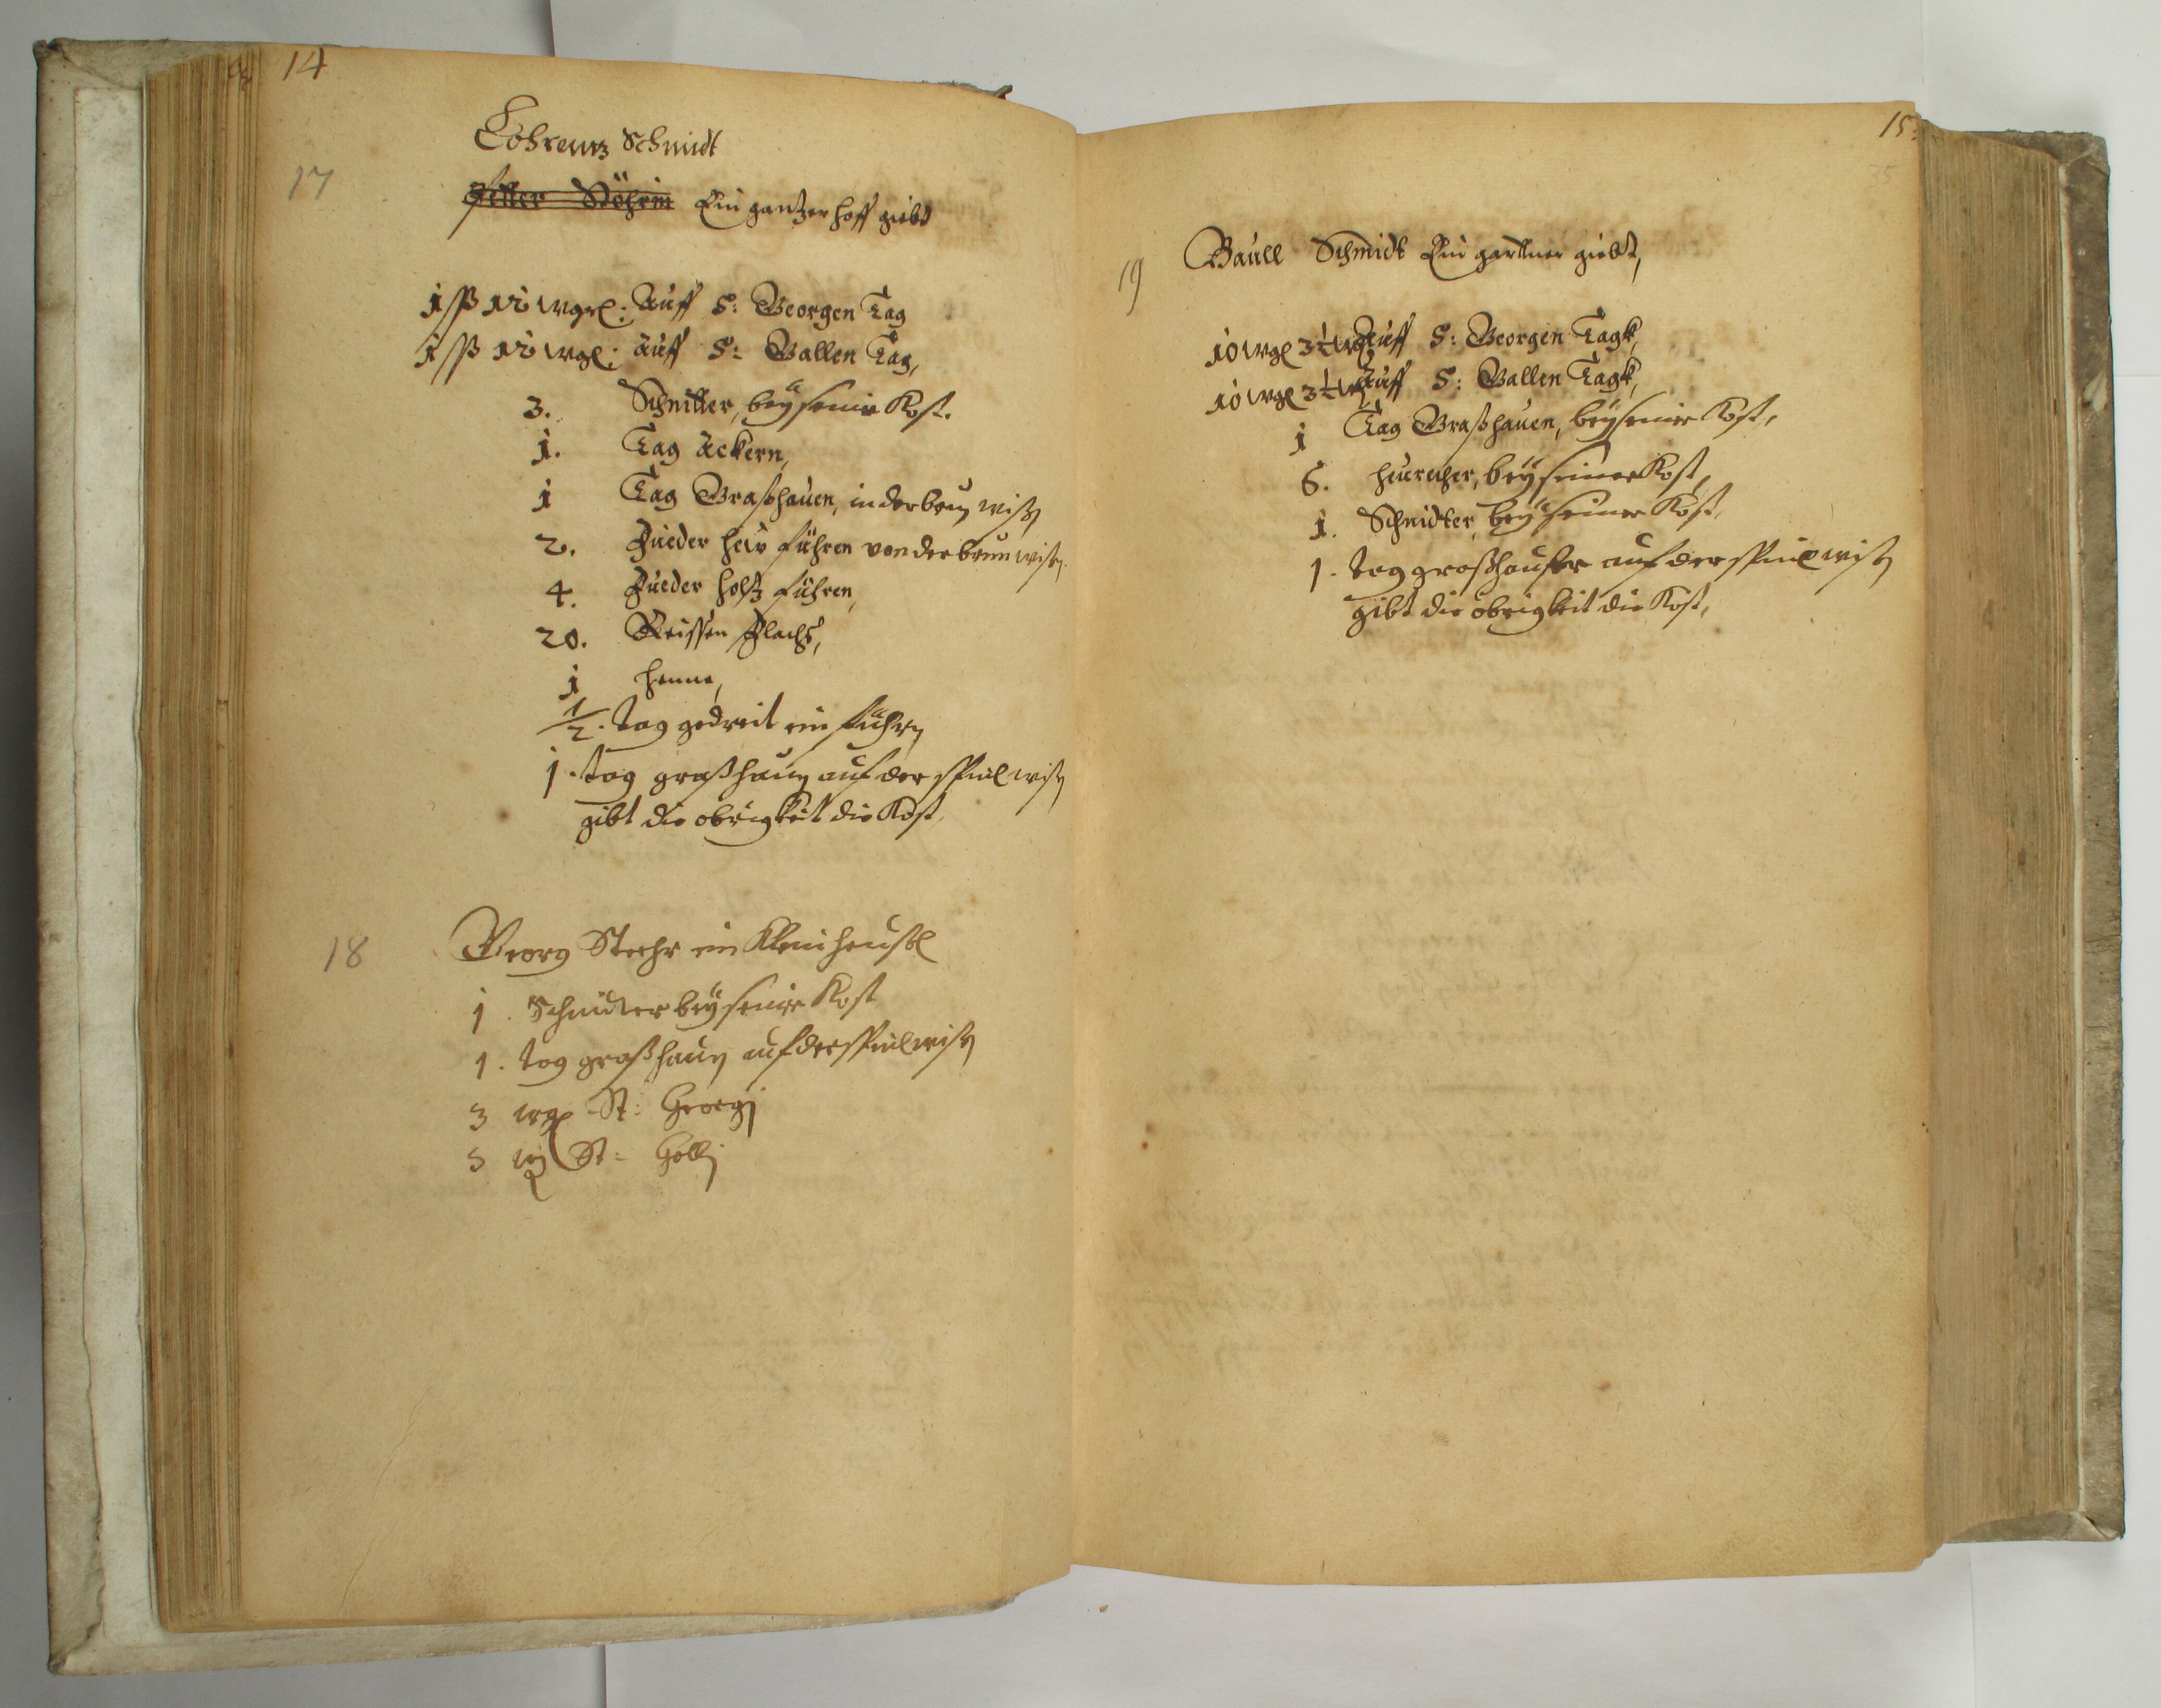 14
Lohrentz Schmidt
17
Peter Stöhrin Ein gantzer hoff giebt
1 ss 12 wgl: Auff S: Georgen Tag
1 ss 12 wgl: auff S: Gallen Tag,
3. Schnitter, beÿ seiner Kost.
1. Tag Ackern,
1 Tag Graßhauen, in der brun wisen
2. Fueder heu führen von der brun wisen
4. Fueder holtz führen,
20. Reissen Flachß,
1 henne,
1/2. tag gedreit ein führn
1. tag graßhaun auf der spitlwisen
gibt die obrigkeit die Kost.
18
Georg Stehr ein Kleinheusl
1. Schnidter beÿ seiner Kost
1. tag graßhaun auf der spitlwisen
3 wgl St: Georgj
3 wgl St: Gallj
15.
35
19
Paull Schmidt Ein gartner giebt,
10 wgl 3 1/2 Auff S: Georgen Tagk,
10 wgl 3 1/2 Auff S: Gallen Tagk,
1 Tag Graßhauen, beÿ seiner Kost,
6. heurecher, beÿ seiner Kost,
1. Schnidter, beÿ seiner Kost,
1. tag graßhauen auf der spitlwisen
gibt die obrigkeit die Kost,